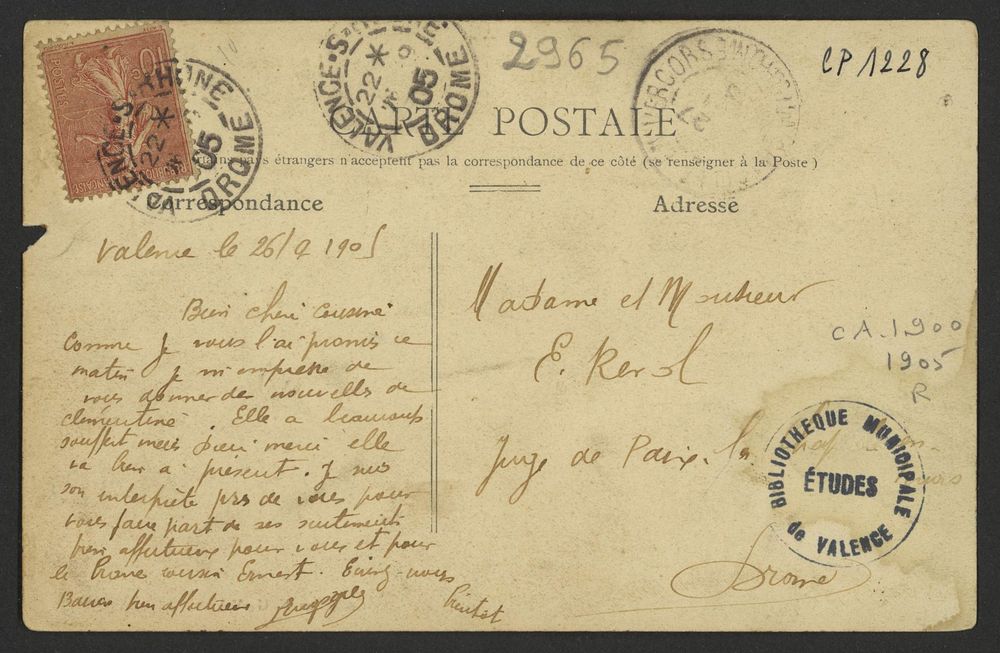 2965
CP 1228
10
POSTES
VALENCE-S-RHONE
22 *
05
DROME
VALENCE-S-
22 *
05
DROME
VERCORS
CARTE POSTALE
pays étrangers n'acceptent pas la correspondance de ce côté (se renseigner à la Poste)
Correspondance
Adresse
Valence le 26/ 1905
Bien chère cousine
Comme je vous l'ai promis ce
matin je m'empresse de
vous donner des nouvelles de
clémentine. Elle a beaucoup
souffert mais Dieu merci elle
va bien à présent. Je suis
son interprète près de vous pour
vous faire part de ses sentiments
bien affectueux pour vous et pour
le brave cousin Ernest. Ecrivez-nous
bientot
Baisers bien affectueux
Madame et Monsieur
E. Kerol
Juge de Paix. La
Drome
CA. 1900
1905
R
BIBLIOTHEQUE MUNICIPALE
ÉTUDES
de VALENCE